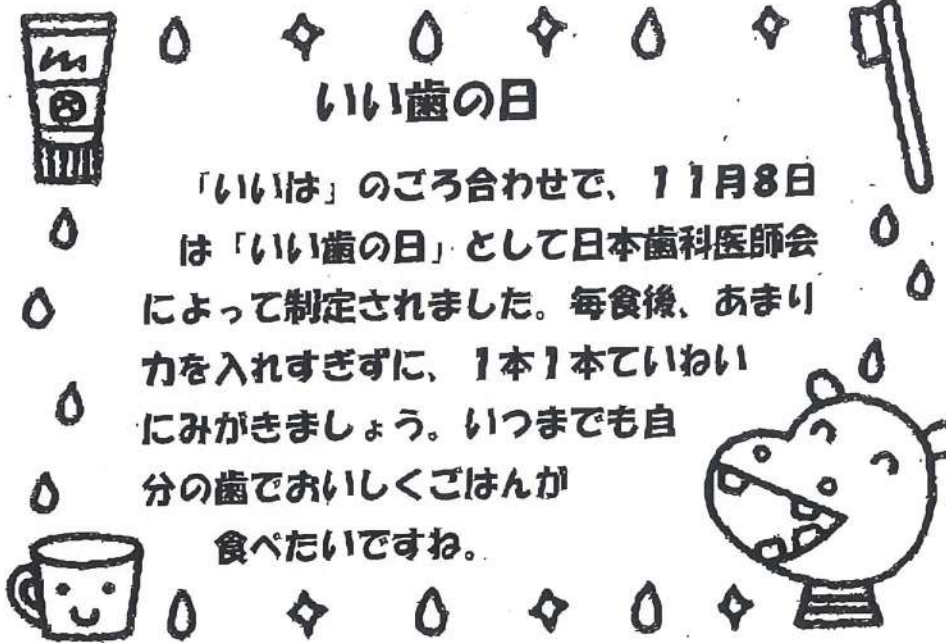 いい歯の日
「いいは」のごろ合わせで、11月8日
は「いい歯の日」として日本歯科医師会
によって制定されました。毎食後、あまり
力を入れすぎずに、1本1本ていねい
にみがきましょう。いつまでも自
分の歯でおいしくごはんが
食べたいですね。